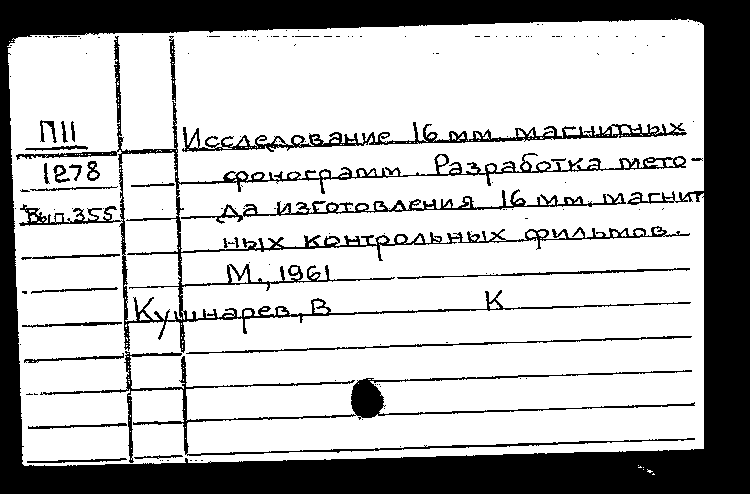 П11
1278
Вып.355
Исследование 16 мм. магнитных
фонограмм. Разработка мето-
да изготовления 16 мм. магнит
ных контрольных фильмов.
М., 1961
Кушнарев, В К